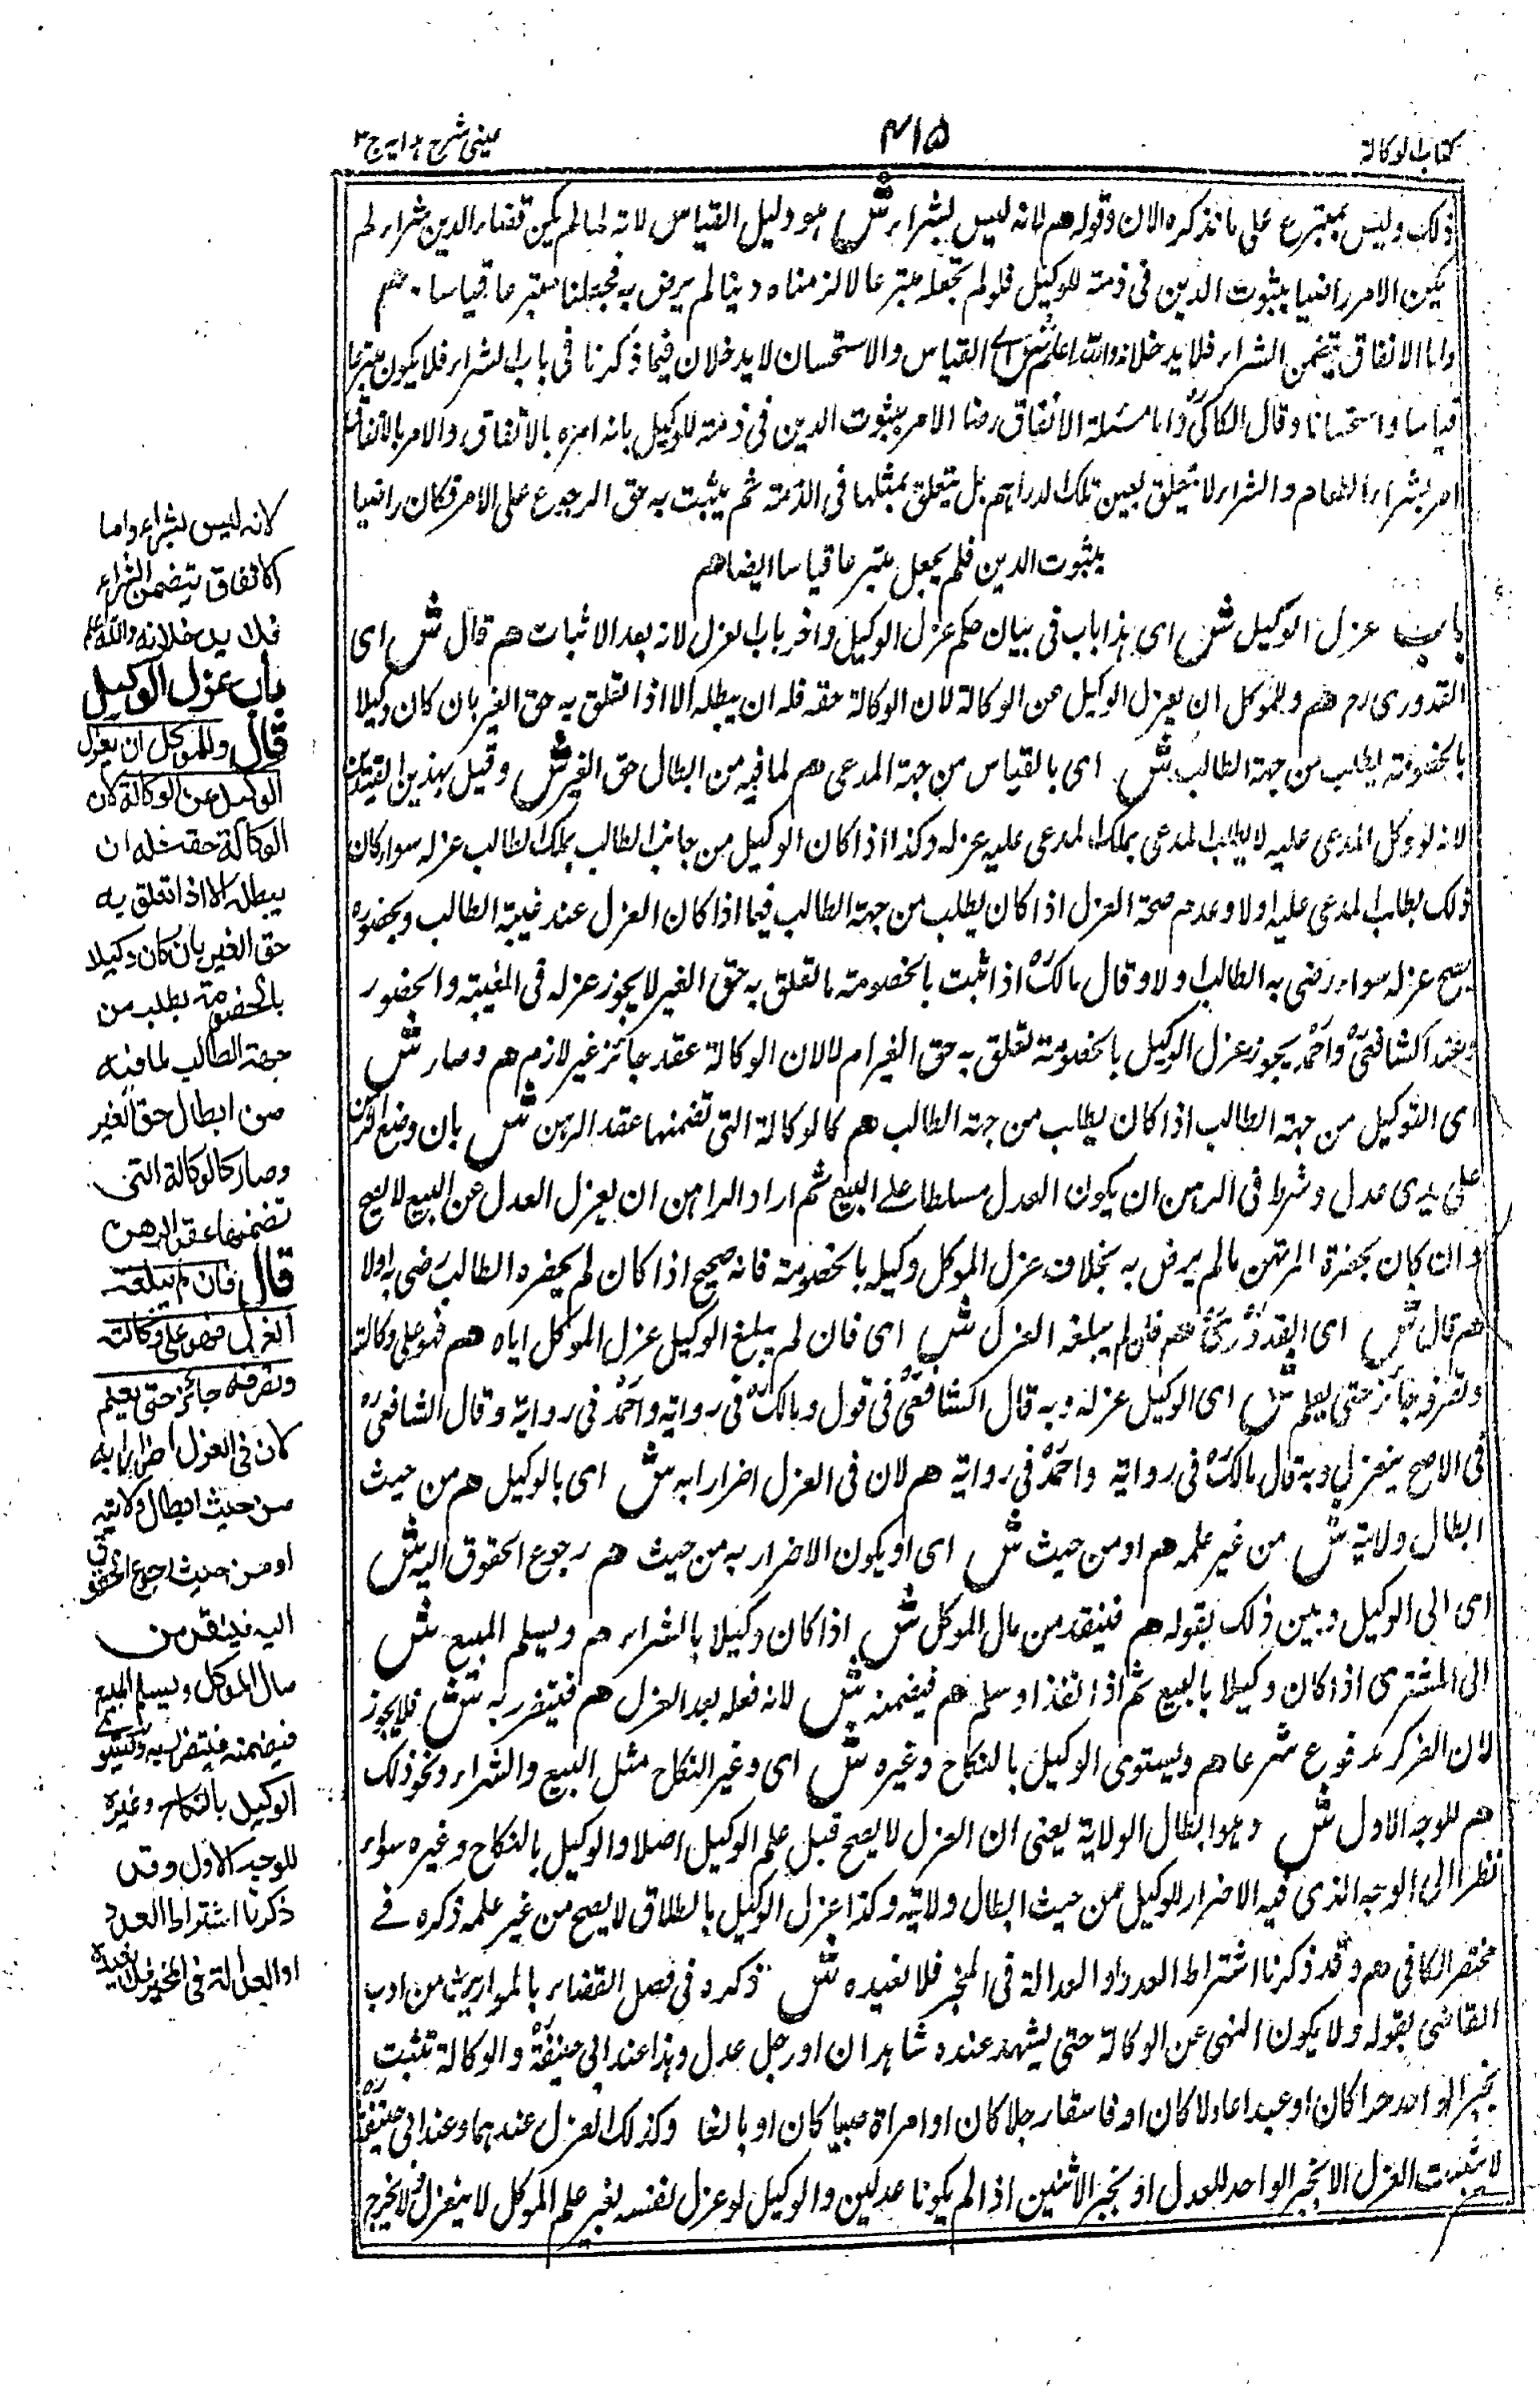 كتاب الوكالة
٤١٥
عيني شرح هدايه ج ٣
ذلك وليس بمتبرع على ما نذكره الان وقوله هم لانه ليس بشراء ش هو دليل القياس لانه لما لم يكن قضاء الدين شراء لم
يكن الامر راضيا بثبوت الدين فى ذمته للوكيل فلو لم نجعله متبرعا لالزمناه دينا لم يرض به فجعلنا متبرعا قياسا هم
واما الانفاق يتضمن الشراء فلا يدخلانه والله اعلم ش اى القياس والاستحسان لا يدخلان فيما ذكرنا فى باب الشراء فلا يكون متبرعا
قياسا واستحسانا وقال الكاكىؒ واما مسئلة الانفاق رضا الامر بثبوت الدين فى ذمته للوكيل بانه امره بالانفاق والامر بالانفاق
امر بشراء الطعام والشراء لا يتعلق بعين تلك الدراهم بل يتعلق بمثلها فى الذمة ثم يثبت به حق الرجوع على الامر فكان راضيا
بثبوت الدين فلم يجعل متبرعا قياسا ايضا هم
باب عزل الوكيل ش اى هذا باب فى بيان حكم عزل الوكيل واخر باب العزل لانه بعد الاثبات هم قال ش اى
القدورى رح هم وللموكل ان يعزل الوكيل من الوكالة لان الوكالة حقه فله ان يبطله الا اذا تعلق به حق الغير بان كان وكيلا
بالخصومة بطلب من جهة الطالب ش اى بالقياس من جهة المدعى هم لما فيه من ابطال حق الغير ش وقيل بهذين القيدين
لانه لو وكل المدعى عليه لا بطلب المدعى يملك المدعى عليه عزله وكذا اذا كان الوكيل من جانب الطالب يملك الطالب عزله سواء كان
ذلك بطلب المدعى عليه اولا وعدم صحة العزل اذا كان بطلب من جهة الطالب فيما اذا كان العزل عند غيبة الطالب وبحضوره
يصح عزله سواء رضى به الطالب اولا وقال مالكؒ اذا ثبت بالخصومة ما تعلق به حق الغير لا يجوز عزله فى الغيبة والحضور
وعند الشافعىؒ واحمدؒ يجوز عزل الوكيل بالخصومة تعلق به حق الغير ام لا لان الوكالة عقد جائز غير لازم هم وصار ش
اى التوكيل من جهة الطالب اذا كان بطلب من جهة الطالب هم كالوكالة التى تضمنها عقد الرهن ش بان وضع الرهن
على يدى عدل وشرط فى الرهن ان يكون العدل مسلطا على البيع ثم اراد الراهن ان يعزل العدل عن البيع لا يصح
وان كان بحضرة المرتهن ما لم يرض به بخلاف عزل الموكل وكيله بالخصومة فانه صحيح اذا كان لم يحضره الطالب رضى به اولا
هم قال ش اى القدورىؒ هم فان لم يبلغه العزل ش اى فان لم يبلغ الوكيل عزل الموكل اياه هم فهو على وكالته
وتصرفه جائز حتى يعلم ش اى الوكيل عزله وبه قال الشافعىؒ فى قول ومالكؒ فى رواية واحمدؒ فى رواية وقال الشافعىؒ
فى الاصح ينعزل وبه قال مالكؒ فى رواية واحمدؒ فى رواية هم لان فى العزل اضرارا به ش اى بالوكيل هم من حيث
ابطال ولاية ش من غير علمه هم او من حيث ش اى او يكون الاضرار به من حيث هم رجوع الحقوق اليه ش
اى الى الوكيل وبين ذلك بقوله هم فينقد من مال الموكل ش اذا كان وكيلا بالشراء هم ويسلم المبيع ش
الى المشترى اذا كان وكيلا بالبيع ثم اذا نقد او سلم هم فيضمنه ش لانه فعله بعد العزل هم فيتضرر به ش فلا يجوز
لان الضرر مرفوع شرعا هم ويستوى الوكيل بالنكاح وغيره ش اى وغير النكاح مثل البيع والشراء ونحو ذلك
هم للوجه الاول ش وهو ابطال الولاية يعنى ان العزل لا يصح قبل علم الوكيل اصلا والوكيل بالنكاح وغيره سواء
نظرا الى الوجه الذى فيه الاضرار للوكيل من حيث ابطال ولايته وكذا عزل الوكيل بالطلاق لا يصح من غير علمه ذكره فى
مختصر الكافى هم وقد ذكرنا اشتراط العدد او العدالة فى المخبر فلا نعيده ش ذكره فى فصل القضاء بالمواريث من ادب
القاضى بقوله ولا يكون النهى عن الوكالة حتى يشهد عنده شاهدان او رجل عدل وهذا عند ابى حنيفةؒ والوكالة تثبت
بخبر الواحد حرا كان او عبدا عادلا كان او فاسقا رجلا كان او امراة صبيا كان او بالغا وكذلك العزل عندهما وعند ابى حنيفةؒ
لا يثبت العزل الا بخبر الواحد العدل او بخبر الاثنين اذا لم يكونا عدلين والوكيل لو عزل نفسه بغير علم الموكل لا ينعزل ولا يخرج
لانه ليس بشراء واما
الانفاق يتضمن الشراء
فلا يدخلانه والله اعلم
باب عزل الوكيل
قال وللموكل ان يعزل
الوكيل عن الوكالة لان
الوكالة حقه فله ان
يبطله الا اذا تعلق به
حق الغير بان كان وكيلا
بالخصومة بطلب من
جهة الطالب لما فيه
من ابطال حق الغير
وصار كالوكالة التى
تضمنها عقد الرهن
قال فان لم يبلغه
العزل فهو على وكالته
وتصرفه جائز حتى يعلم
لان فى العزل اضرارا به
من حيث ابطال ولايته
او من حيث رجوع الحقوق
اليه فينقد من
مال الموكل ويسلم المبيع
فيضمنه فيتضرر به ويستوى
الوكيل بالنكاح وغيره
للوجه الاول وقد
ذكرنا اشتراط العدد
او العدالة فى المخبر فلا نعيده